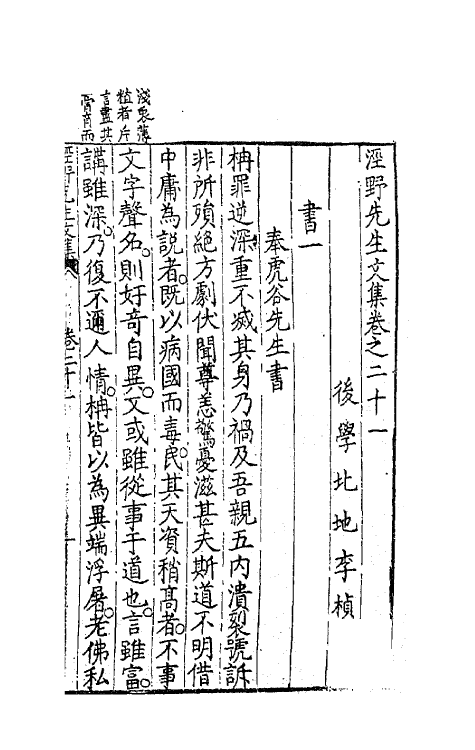 涇野先生文集卷之二十一
後學北地李楨
書一
奉虎谷先生書
柟罪逆深重不滅其身乃禍及吾親五内潰裂號訴
非所殞絕方劇伏聞尊恙驚憂滋甚夫斯道不明借
中庸為說者既以病國而毒民其天資稍髙者不事
文字聲名則好奇自異又或雖從事于道也言雖富
講雖深乃復不邇人情柟皆以為異端浮屠老佛私
涇野先生文集 卷二十一
淺衷薄
植者片
言盡其
膏肓而